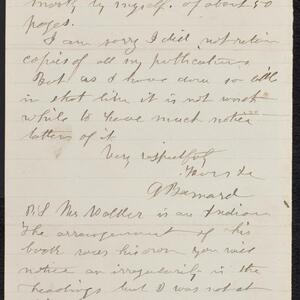 mostly by myself. of about 50
pages.
I am sorry I did not retain
copies of all my publications
But as I have done so little
in that line it is not worth
while to have much notice
taken of it
Very respectfully
Yours &c
A Barnard
P.S Mr Walker is an Indian
The arrangement of his
book was his own you will
notice an irregularity in the
headings but I was not at